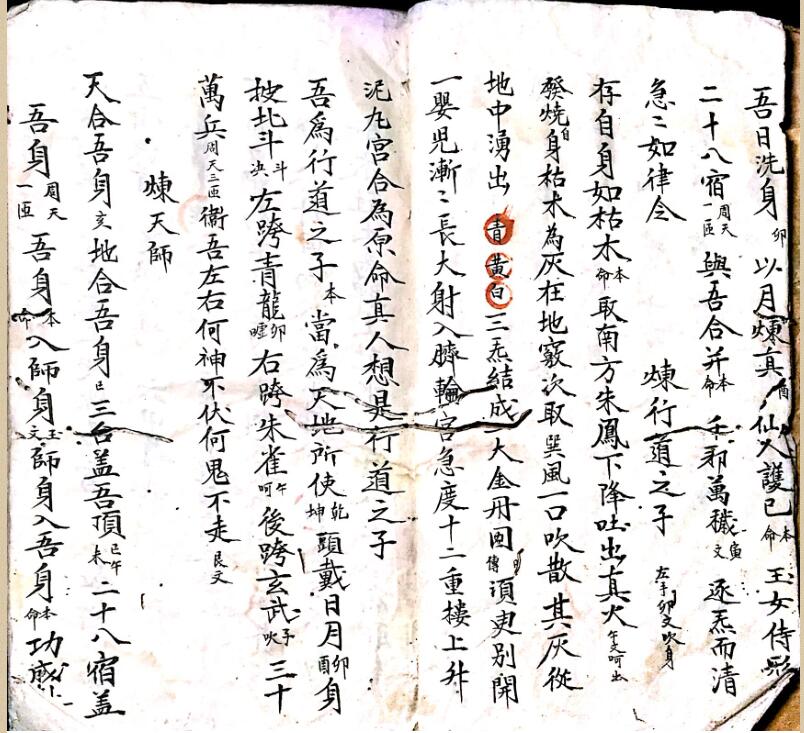 吾日洗身卯以月煉真酉仙人護己本命玉女侍形
二十八宿周天一匝與吾合并本命千邪萬穢寅文逐炁而清
急〻如律令
煉行道之子左手卯文吹身
存自身如枯木本命取南方朱鳳下降吐出真火午文呵出
發燒自身枯木為灰在地竅次取巽風一口吹散其灰從
地中湧出青黃白三炁結成一大金丹圓須臾別開
一嬰兒漸〻長大射入臍輪宮急度十二重樓上升
泥丸宮合為原命真人想是行道之子
吾為行道之子本當為天地所使乾坤頭戴日月卯酉身
披北斗斗決左跨青龍卯噓右跨朱雀午呵後跨玄武子吹三十
萬兵周天三匝衛吾左右何神不伏何鬼不走艮文
煉天師
天合吾身亥地合吾身巳三台盖吾頂巳午未二十八宿盖
吾身周天一匝吾身本命入師身玉文師身入吾身本命功